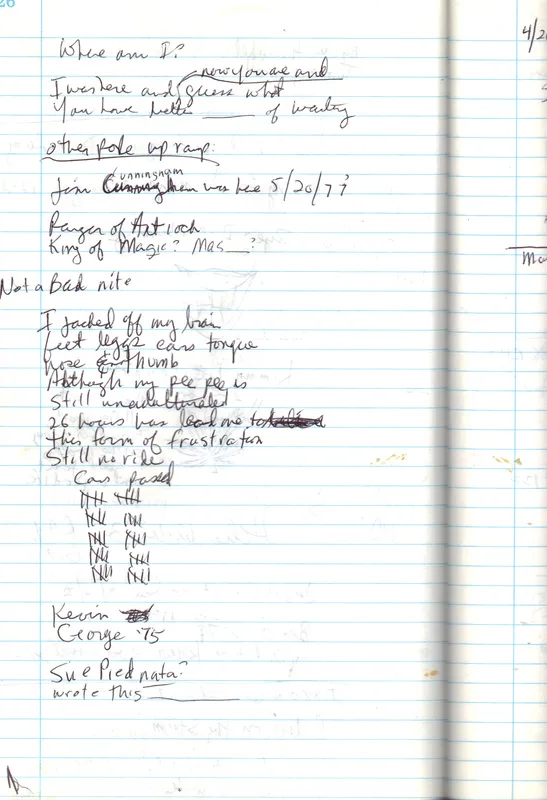 26
Where am I?
now you are and
I was here and guess what
You have hella ____ of waiting
other pole up ramp:
unningham
Jim was here 5/20/77
Ranger of Antioch
King of Magic? Mas__?
Not a Bad nite
I jacked off my brain
feet leggs ears tongue
nose & thumb
Although my pee pee is
Still unadulturated
26 hours has lead me to
this form of frustration
Still no ride
Cars passed
Kevin
George '75
Sue Pied nata?
wrote this ________
4/2
Ma